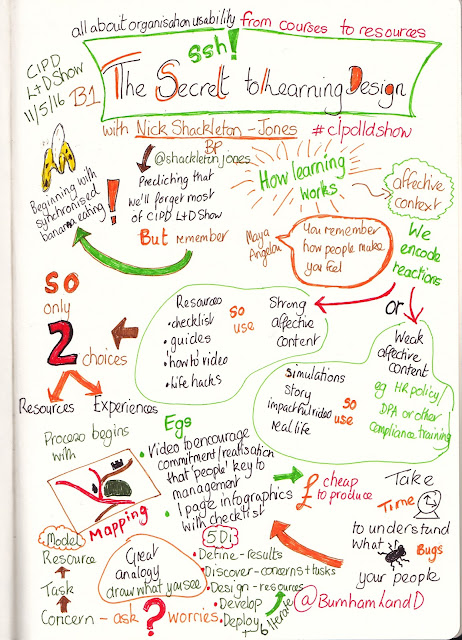 all about organisation usability from courses to resources
CIPD
L+D Show
11/5/16
B1
ssh!
The Secret to Learning Design
with Nick Shackleton-Jones
#cipdldshow
BP
@shackletonjones
Beginning with
synchronised
banana eating
!
Predicting that
we'll forget most
of CIPD L+D Show
But remember
How learning
works
affective
context
Maya
Angelou
You remember
how people make
you feel
We
encode
reactions
or
so
only
2
choices
Resources
• checklist
• guides
• 'how to' video
• life hacks
so
use
Strong
affective
content
Weak
affective
content
eg HR policy/
DPA or other
compliance training
Simulations
story
impactful video
real life
so
use
Resources
Experiences
Process begins
with
Mapping
Egs
• Video to encourage
commitment/realisation
that 'people' key to
management
• 1 page infographics
with checklist
£ cheap
to produce
Take
Time
to understand
what Bugs
your people
Model
Resource
Task
Concern - ask ? worries
Great
analogy
draw what you see
5Di
• Define - results
• Discover - concerns + tasks
• Design - resources
• Develop
• Deploy + iterate
@BurnhamLandD